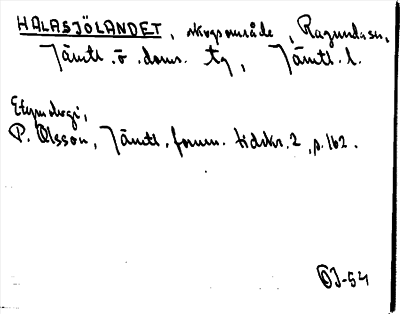 HALASJÖLANDET, skogsområde, Ragunda sn,
Jämtl. ö. doms. tg, Jämtl. l.
Etymologi,
P. Olsson, Jämtl. fornm. tidskr. 2, p. 162.
ÖJ-54